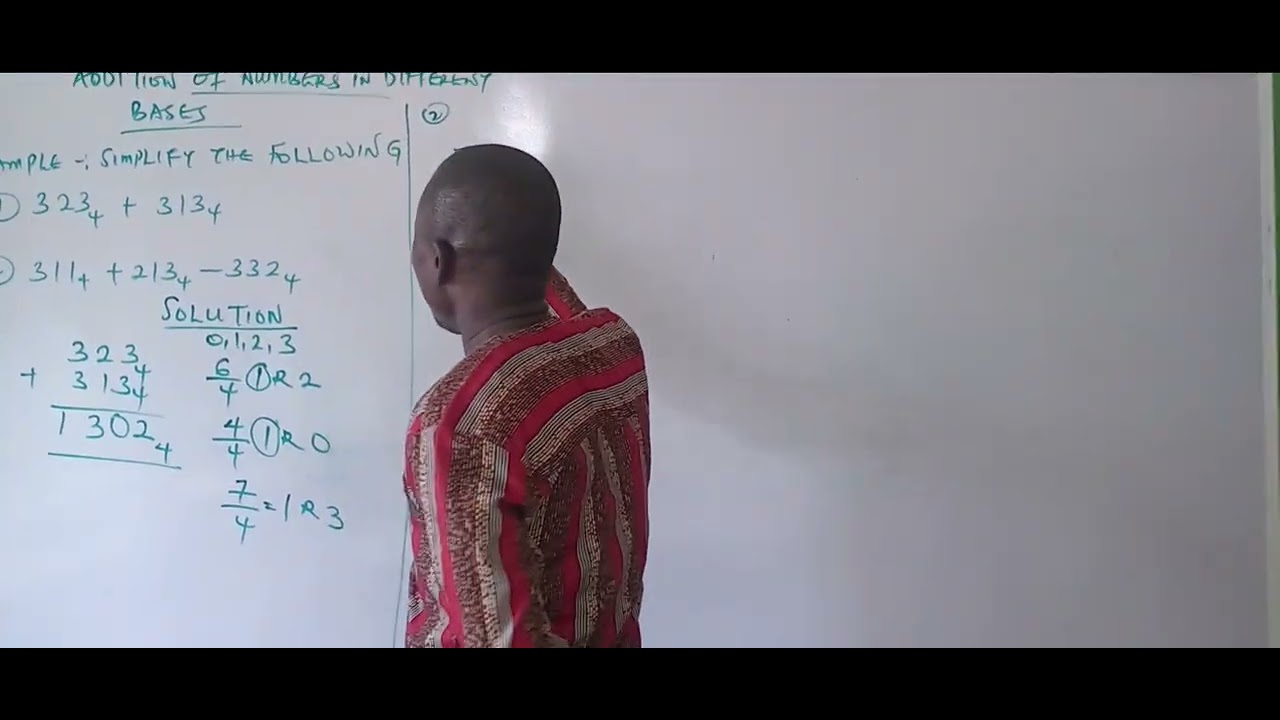 ADDITION OF NUMBERS IN DIFFERENT
BASES
AMPLE -: SIMPLIFY THE FOLLOWING
① 323₄ + 313₄
311₄ + 213₄ - 332₄
SOLUTION
0, 1, 2, 3
323₄
+ 313₄
1302₄
6/4 ① R 2
4/4 ① R 0
7/4 = 1 R 3
②